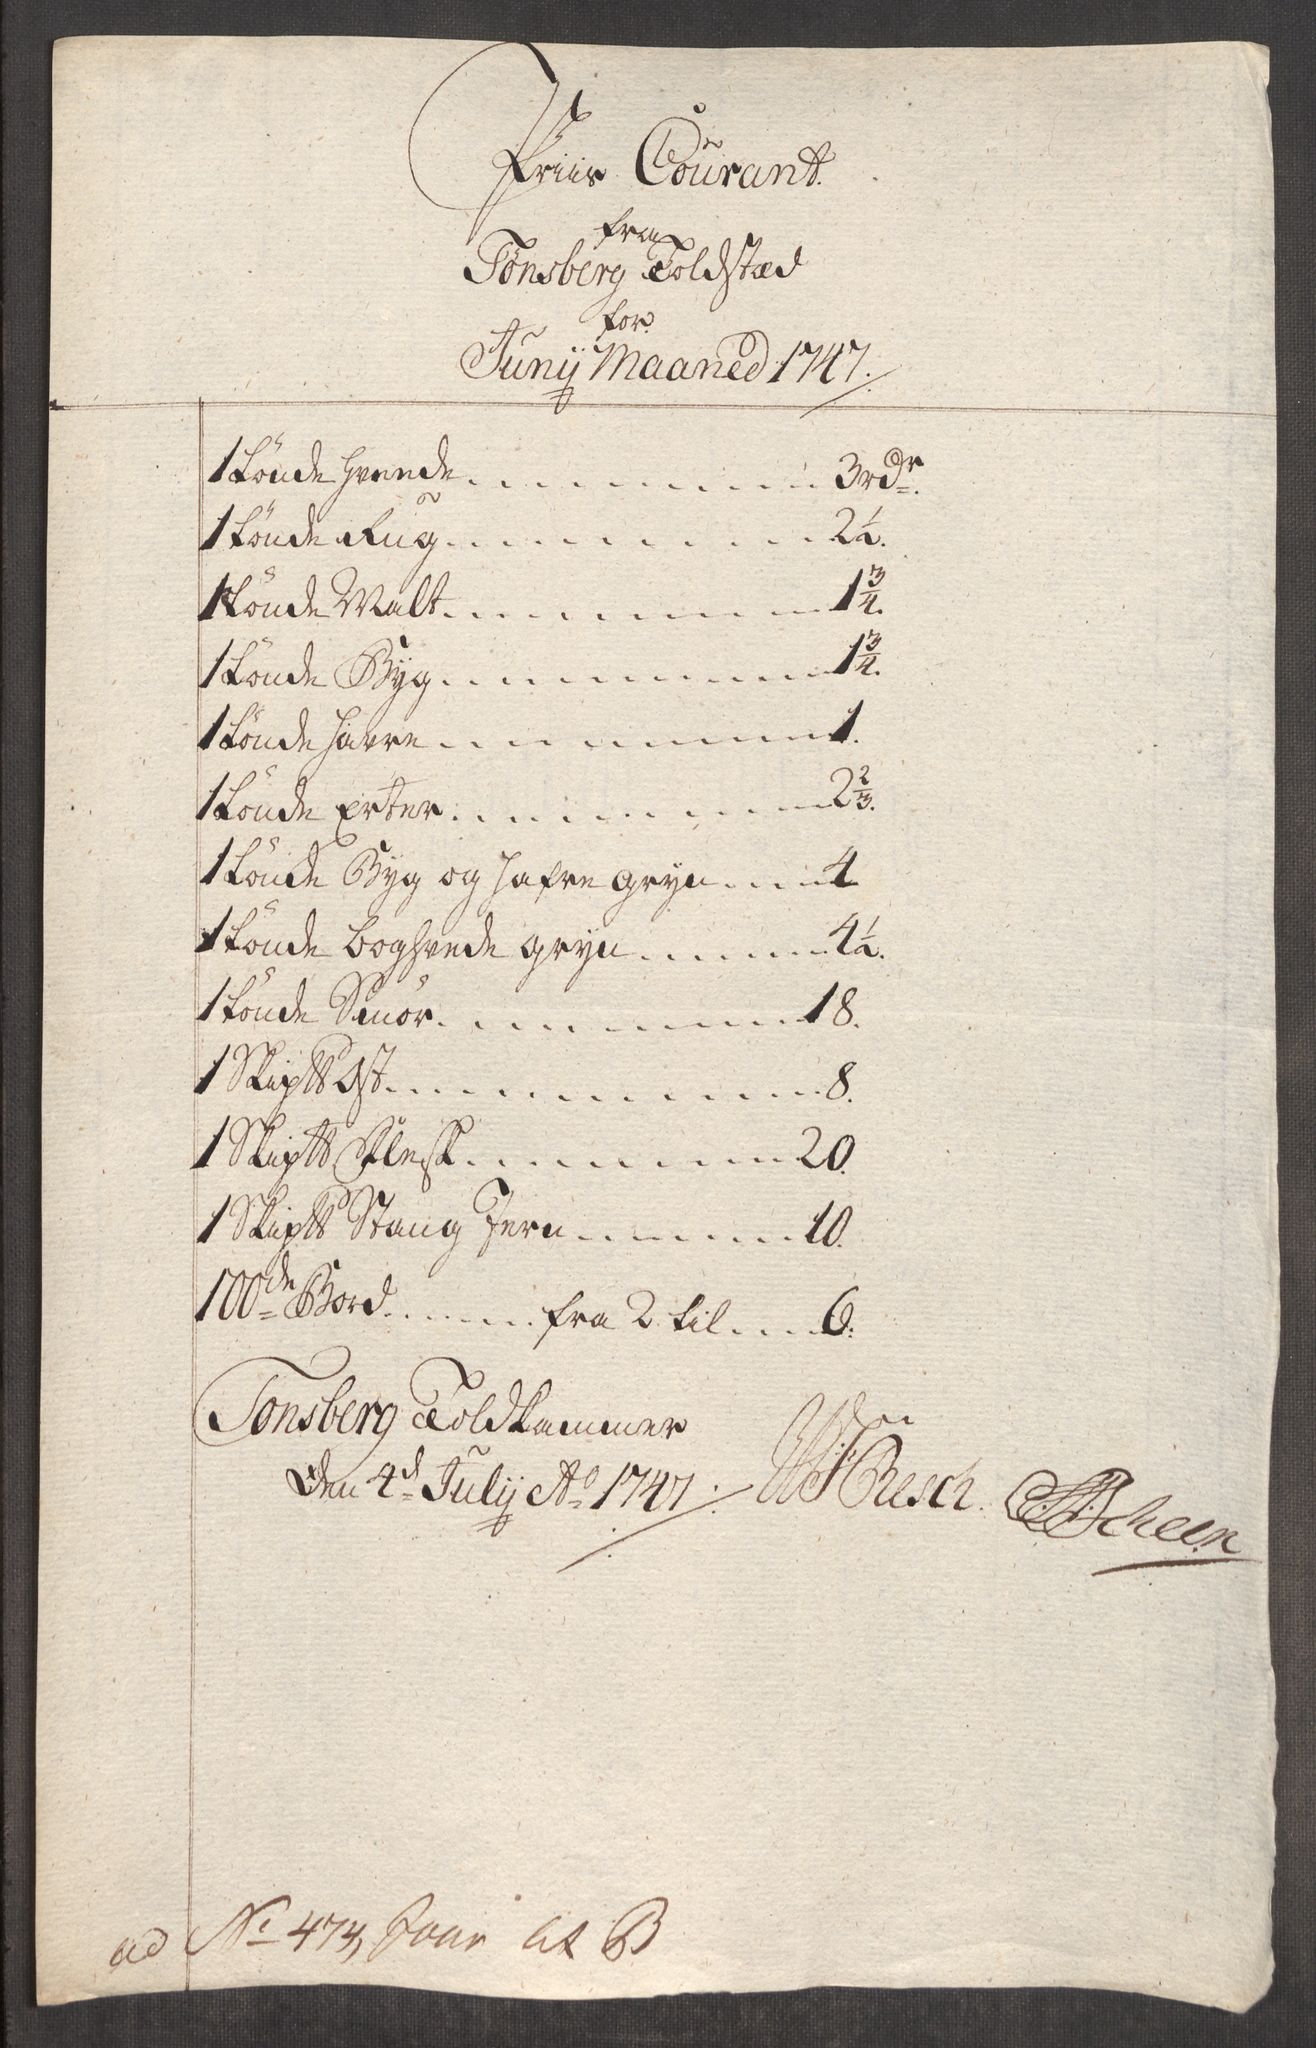 Priis Courant.
fra
Tønsberg Toldstæd
for
Junij Maaned 1747.
1 tönde Hvede 3 rdr.
1 tönde Rug 2 1/2.
1 tönde Malt 1 3/4.
1 tönde Byg 1 3/4.
1 tönde Havre 1.
1 tönde Erter 2 2/3.
1 tönde Byg og Hafre gryn 4
1 tönde boghvede gryn 4 1/2.
1 tönde Smör 18.
1 Skiptt Ost 8.
1 Skiptt Flesk 20.
1 Skiptt Stang Jern 10.
100de Bord fra 2 til 6.
Tonsberg Toldkammer
Den 4d Julij Ao 1747 Resch. Scheen
ad No 474, Lit B